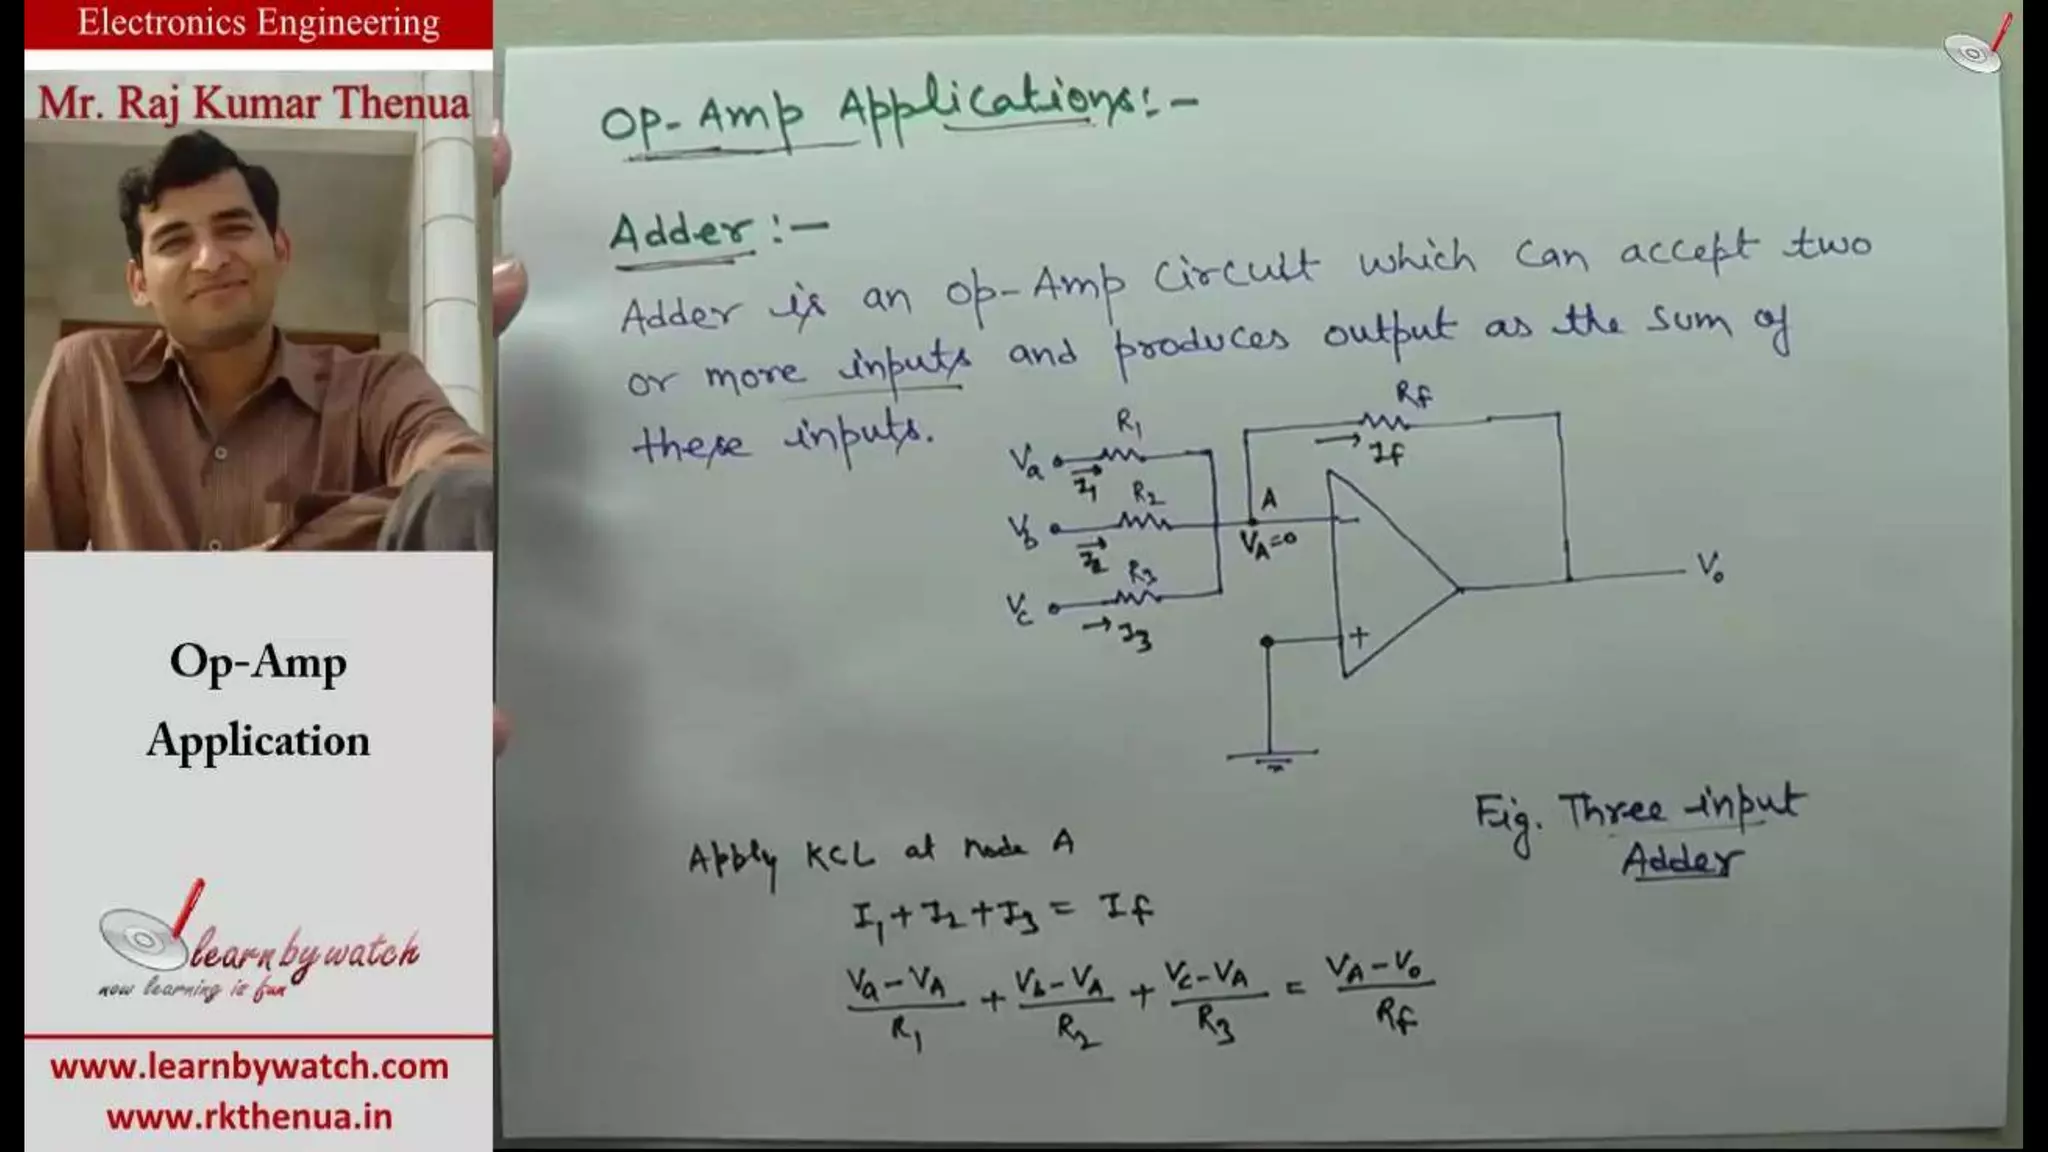 Electronics Engineering
Mr. Raj Kumar Thenua
Op-Amp
Application
learnbywatch
now learning is fun
www.learnbywatch.com
www.rkthenua.in
Op-Amp Applications:-
Adder:-
Adder is an Op-Amp circuit which can accept two
or more inputs and produces output as the sum of
these inputs.
Rf
If
R1
Va
I1
R2
Vb
I2
R3
Vc
I3
A
VA=0
-
+
Vo
Fig. Three input
Adder
Apply KCL at node A
I1+I2+I3 = If
Va-VA/R1 + Vb-VA/R2 + Vc-VA/R3 = VA-Vo/Rf